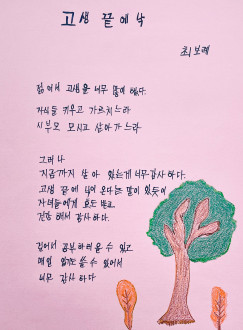 고생 끝에 낙
최보례
젊어서 고생을 너무 많이 했다.
자식들 키우고 가르치느라
시부모 모시고 살아가느라
그러나
지금까지 살아 있는게 너무 감사하다.
고생 끝에 낙이 온다는 말이 있듯이
자녀들에게 효도 받고
건강해서 감사하다.
집에서 공부하러 올 수 있고
매일 일기도 쓸 수 있어서
너무 감사하다